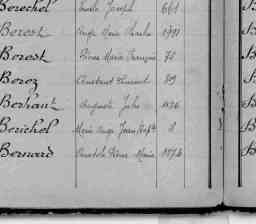 Berechel Joseph 661
Berest Ange Marie Charles 1791
Berest Pierre Marie François 72
Berez Constant Laurent 89
Berhaut Auguste Jules 1876
Berichel Marie Ange Jean Bapte 8
Bernard Anatole Pierre Marie 1876